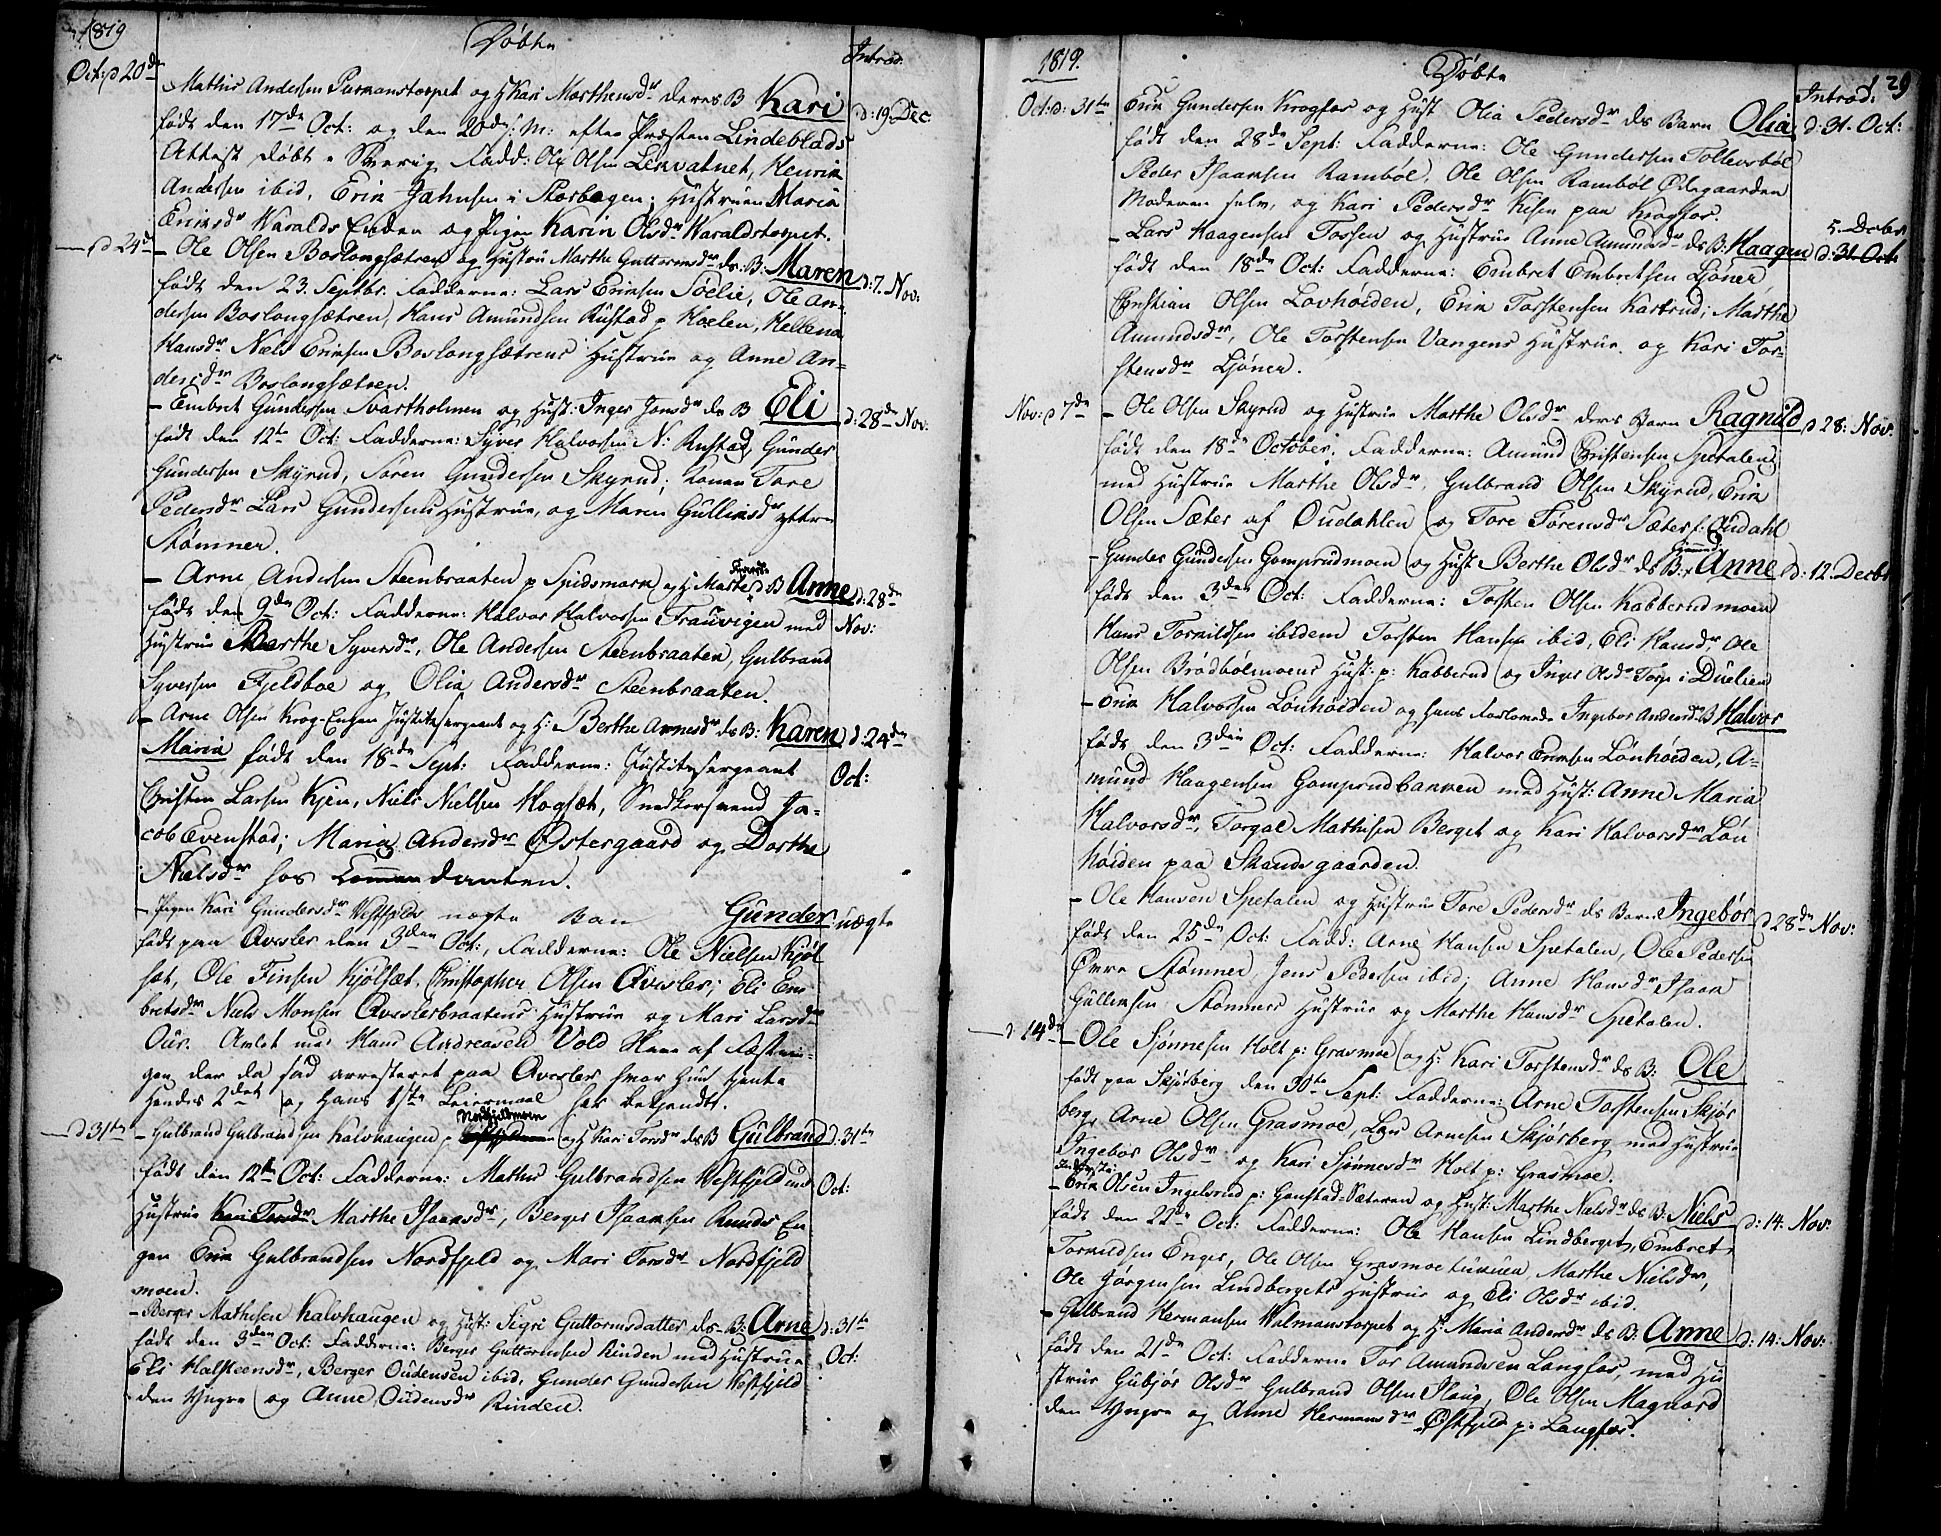 1819
Døbte
Introd.
Oct: d 20de
Mathis Andersen Purmanstorpet og H Kari Morthensdr deres B Kari
d: 19 Dec
født den 17de Oct: og den 20de s: M: efter Præsten Lindeblads
Attest døbt i Sverig Fadd: Ole Olsen Lervatnet, Henrik
Andersen ibid, Erik Jahnsen i Storbogen; Hustruen Maria
Eriksdr Haralds Enden og Pigen Karin Olsdr Haraldstorpet.
d 24de
- Ole Olsen Boslongsætren og Hustru Marthe Guttormsdr ds: B: Maren
d: 7. Nov:
født den 23. Septbr. Fadderne: Lars Eriksen Sœlie, Ole An-
dersen Boslongsætren, Hans Amundsen Rustad p Hoelen, Hellena
Hansdr Niels Eriksen Boslongsætrens Hustrue og Anne An-
dersdr Boslongsætren.
- Embret Gundersen Svartholmen og Hust: Inger Jonsdr ds B Eli
d: 28de Nov:
født den 12te Oct: Fadderne: Syver Halvorsen N: Rustad, Gunder
Gundersen Skyrud, Søren Gundersen Skyrud; Konen Tore
Pedersdr Lars Gundersens Hustrue, og Maren Gulliksdr yttre
Stømner.
- Arne Andersen Steenbraaten p Spidsmark og H Marte ds B Anne
d: 28de
født den 9de Oct: Fadderne: Halvor Halvorsen Frauvigen med
Nov:
Hustrue Marthe Syversdr, Ole Andersen Steenbraaten, Gulbrand
Syversen Fjeldboe og Olia Andersdr Steenbraaten.
- Arne Olsen Krog-Engen Justitzsergeant og H: Berthe Arnesdr ds B: Karen
d: 24de
Maria født den 18de Sept: Fadderne: Justitssergeant
Oct:
Christen Larsen Kjen, Niels Nielsen Hogsæt, Snedkersvend Ja-
cob Evenstad; Maria Andersdr Østergaard og Dorthe
Nielsdr hos Commandanten.
- Pigen Kari Gundersdr Vestfjelds uægte Barn Gunder
uægte
født paa Overler den 3den Oct:, Fadderne: Ole Nielsen Kjøl
sæt, Ole Finsen Kjølsæt, Christopher Olsen Overler; Eli Em-
bretsdr Niels Monsen Overlerbraatens Hustrue og Mari Larsdr
Our. Avlet med Hans Andreasen Vold Slave af Fæstnin-
gen der da sad arresteret paa Overler hvor hun tjente
Hendes 2det og Hans 1ste Leiermaal har bekjendt.
d 31te
- Gulbrand Gulbrandsen Kalvhaugen p Nordfjeldmoen og H Kari Torsdr ds B Gulbrand
d: 31te
født den 12te Oct: Fadderne: Mathis Gulbrandsen Vestfjeld med
Oct:
Hustrue Kari Torsdr Marthe Isaksdr, Berger Isaaksen Runds En
gen Erik Gulbrandsen Nordfjeld og Mari Torsdr Nordfjeld
moen.
- Berger Mathisen Kalvhaugen og Hust: Sigri Guttormsdatter ds B: Arne
d: 31te
født den 3den Oct: Fadderne: Berger Guttormsen Rinden med Hustrue
Oct:
Eli Halsteensdr, Berger Oudensen ibid, Gunder Gundersen Vestfjeld
den Yngre og Anne Oudensdr Rinden.
1819.
Døbte
Introd:
29
Oct: d: 31te
Erik Gundersen Krogfos og Hust Olia Pedersdr ds Barn Olia
d: 31. Oct:
født den 28de Sept: Fadderne: Ole Gundersen Tollersbøl
Peder Isaaksen Rambøl, Ole Olsen Rambøl Ødegaarden
Moderen selv, og Kari Pedersdr Kisen paa Krogfos.
5. Decbr
- Lars Haagensen Tossen og Hustrue Anne Amundsdr ds B: Haagen
d: 31 Oct:
født den 18de Oct: Fadderne: Embret Embretsen Ljøner
Christian Olsen Lovhøiden, Erik Torstensen Kastrud; Marthe
Amundsdr, Ole Torstensen Vangens Hustrue og Kari Tor-
stensdr Ljøner.
Nov: d 7de
- Ole Olsen Skyrud og Hustrue Marthe Olsdr deres Barn Ragnild
d 28: Nov.
født den 18de October; Fadderne: Amund Christensen Spetalen
med Hustrue Marthe Olsdr, Gulbrand Olsen Skyrud, Erik
Olsen Sæter af Oudahlen og Tore Sørensdr Sæter i Oudahl
- Gunder Gundersen Gomprudmoen og Hust Berthe Olsdr ds B: Anne
d: 12. Decbr
født den 3den Oct: Fadderne: Torsten Olsen Kabberud moen
Hans Torkildsen ibidem Torsten Hansen ibid, Eli Hansdr, Ole
Olsen Brødbølmoens Hust: p: Kabberud og Inger Olsdr Torp i Duelien
- Erik Halvorsen Lønhøiden og hans Forlovede Ingebor Andersdr B Halvor
født den 3die Oct: Fadderne: Halvor Eriksen Lønhøiden, A-
mund Haagensen Gomprudbakken med Hust: Anne Maria
Halvorsdr, Torgal Mathisen Berget og Kari Halvorsdr Løn
høiden paa Skandsgaarden.
- Ole Hansen Spetalen og Hustrue Tore Pedersdr ds Barn Ingebor
d 28de Nov:
født den 25de Oct: Fadd: Arne Hansen Spetalen, Ole Pedersen
Øvre Stømner, Jens Pedersen ibid; Anne Hansdr Isaak
Gulliksen Stømners Hustrue og Marthe Hansdr Spetalen.
d 14de
- Ole Sjønnesen Holt p: Grasmoe og H: Kari Torstensdr ds B: Ole
født paa Skjørberg den 30te Sept: Fadderne: Arne Torstensen Skjør
berg, Arne Olsen Grasmoe, Lars Arnesen Skjørberg med Hustrue
Ingebor Olsdr og Kari Sjønnesdr Holt p: Grasmoe.
- Erik Olsen Ingelsrud p: Gaustad-Sæteren og Hust: Marthe Nielsdr ds B: Niels
d: 14: Nov:
født den 22de Oct: Fadderne: Ole Hansen Lindberget, Embret
Torkildsen Enger, Ole Olsen Grasmoe, Marthe Nielsdr,
Ole Jørgensen Lindbergets Hustrue og Eli Olsdr ibid.
- Gulbrand Hermansen Walmanstorpet og H: Maria Andersdr ds B: Anne
d: 14: Nov:
født den 21de Oct: Fadderne Tor Amundsen Langfos, med Hu
strue Gubjør Olsdr Gulbrand Olsen Slaug, Ole Olsen Magnord
den Yngre og Anne Hermansdr Østfjeld p: Langfos.